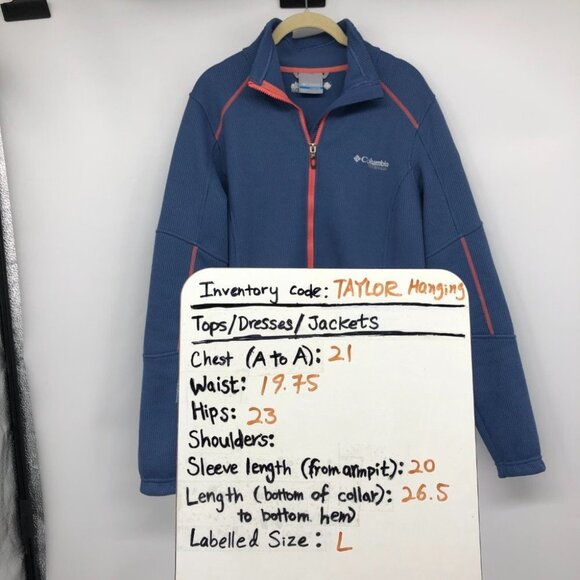 Columbia
Inventory code: TAYLOR Hanging
Tops/Dresses/Jackets
Chest (A to A): 21
Waist: 19.75
Hips: 23
Shoulders:
Sleeve length (from armpit): 20
Length (bottom of collar): 26.5
to bottom hem)
Labelled Size: L